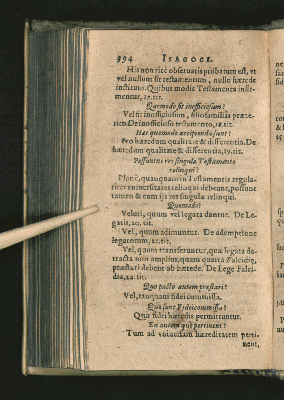 394 ISAGOGE.
His non ritè obseruatis probatum est, vt
vel nullum sit testamentum, nullo hærede
instituto. Quibus modis Testamenta infir-
mentur, 17. tit.
Quomodo sit inofficiosum?
Vel sit inofficiosum, filiofamilias præte-
rito. De inofficioso testamento, 18. tit.
Hæc quomodo accipienda sunt?
Pro hæredum qualitate & differentia. De
hæredum qualitate & differentia, 19. tit.
Possuntne res singulæ Testamento
relinqui?
Planè, quanquam in Testamentis regula-
riter vniuersitates relinqui debeant, possunt
tamen & eum iis res singulæ relinqui.
Quomodo?
Veluti, quum vel legata dantur. De Le-
gatis, 20. tit.
Vel, quum adimuntur. De ademptione
legatorum, 21. tit.
Vel, quum transferuntur, quæ legata de-
tracta non amplius, quam quarta Falcidiæ,
præstari debent ab hærede. De Lege Falci-
dia, 22. tit.
Quo pacto autem præstari?
Vel, tanquam fideicommissa.
Quæ sunt Fideicommissa?
Quæ fidei hæredis permittuntur.
Ea autem quò pertinent?
Tum ad vniuersam hæreditatem perti-
nent,